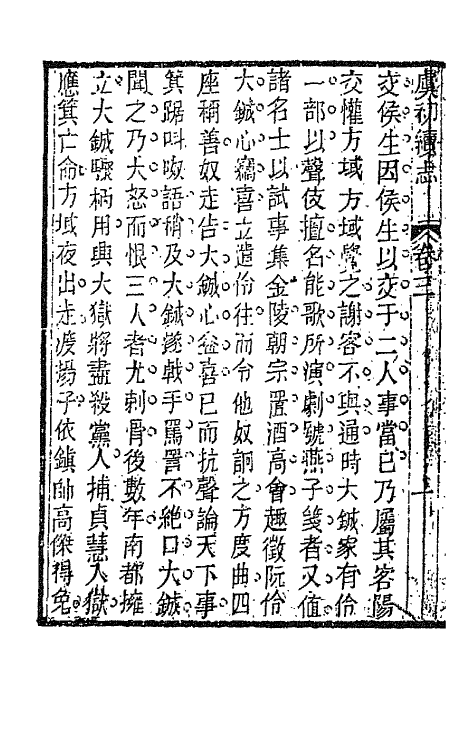 虞初續志 卷三 一
交侯生因侯生以交于二人事當已乃屬其客陽
交懽方域方域覺之謝客不與通時大鋮家有伶
一部以聲伎擅名能歌所演劇號燕子箋者又值
諸名士以試事集金陵朝宗置酒高會趣徵阮伶
大鋮心竊喜立遣伶往而令他奴詗之方度曲四
座稱善奴走告大鋮心益喜已而抗聲論天下事
箕踞呌呶語稍及大鋮遂戟手罵詈不絕口大鋮
聞之乃大怒而恨三人者尤刺骨後數年南都擁
立大鋮驟柄用興大獄將盡殺黨人捕貞慧入獄
應箕亡命方域夜出走渡揚子依鎮帥高傑得免